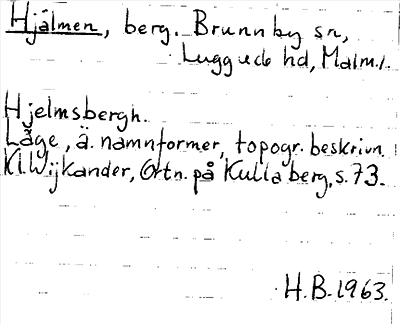 Hjälmen, berg. Brunnby sn,
Luggude hd, Malm.l.
Hjelmsbergh.
Läge, ä. namnformer, topogr. beskrivn.
Kl. Wijkander, Ortn. på Kullaberg, s. 73.
H.B. 1963.